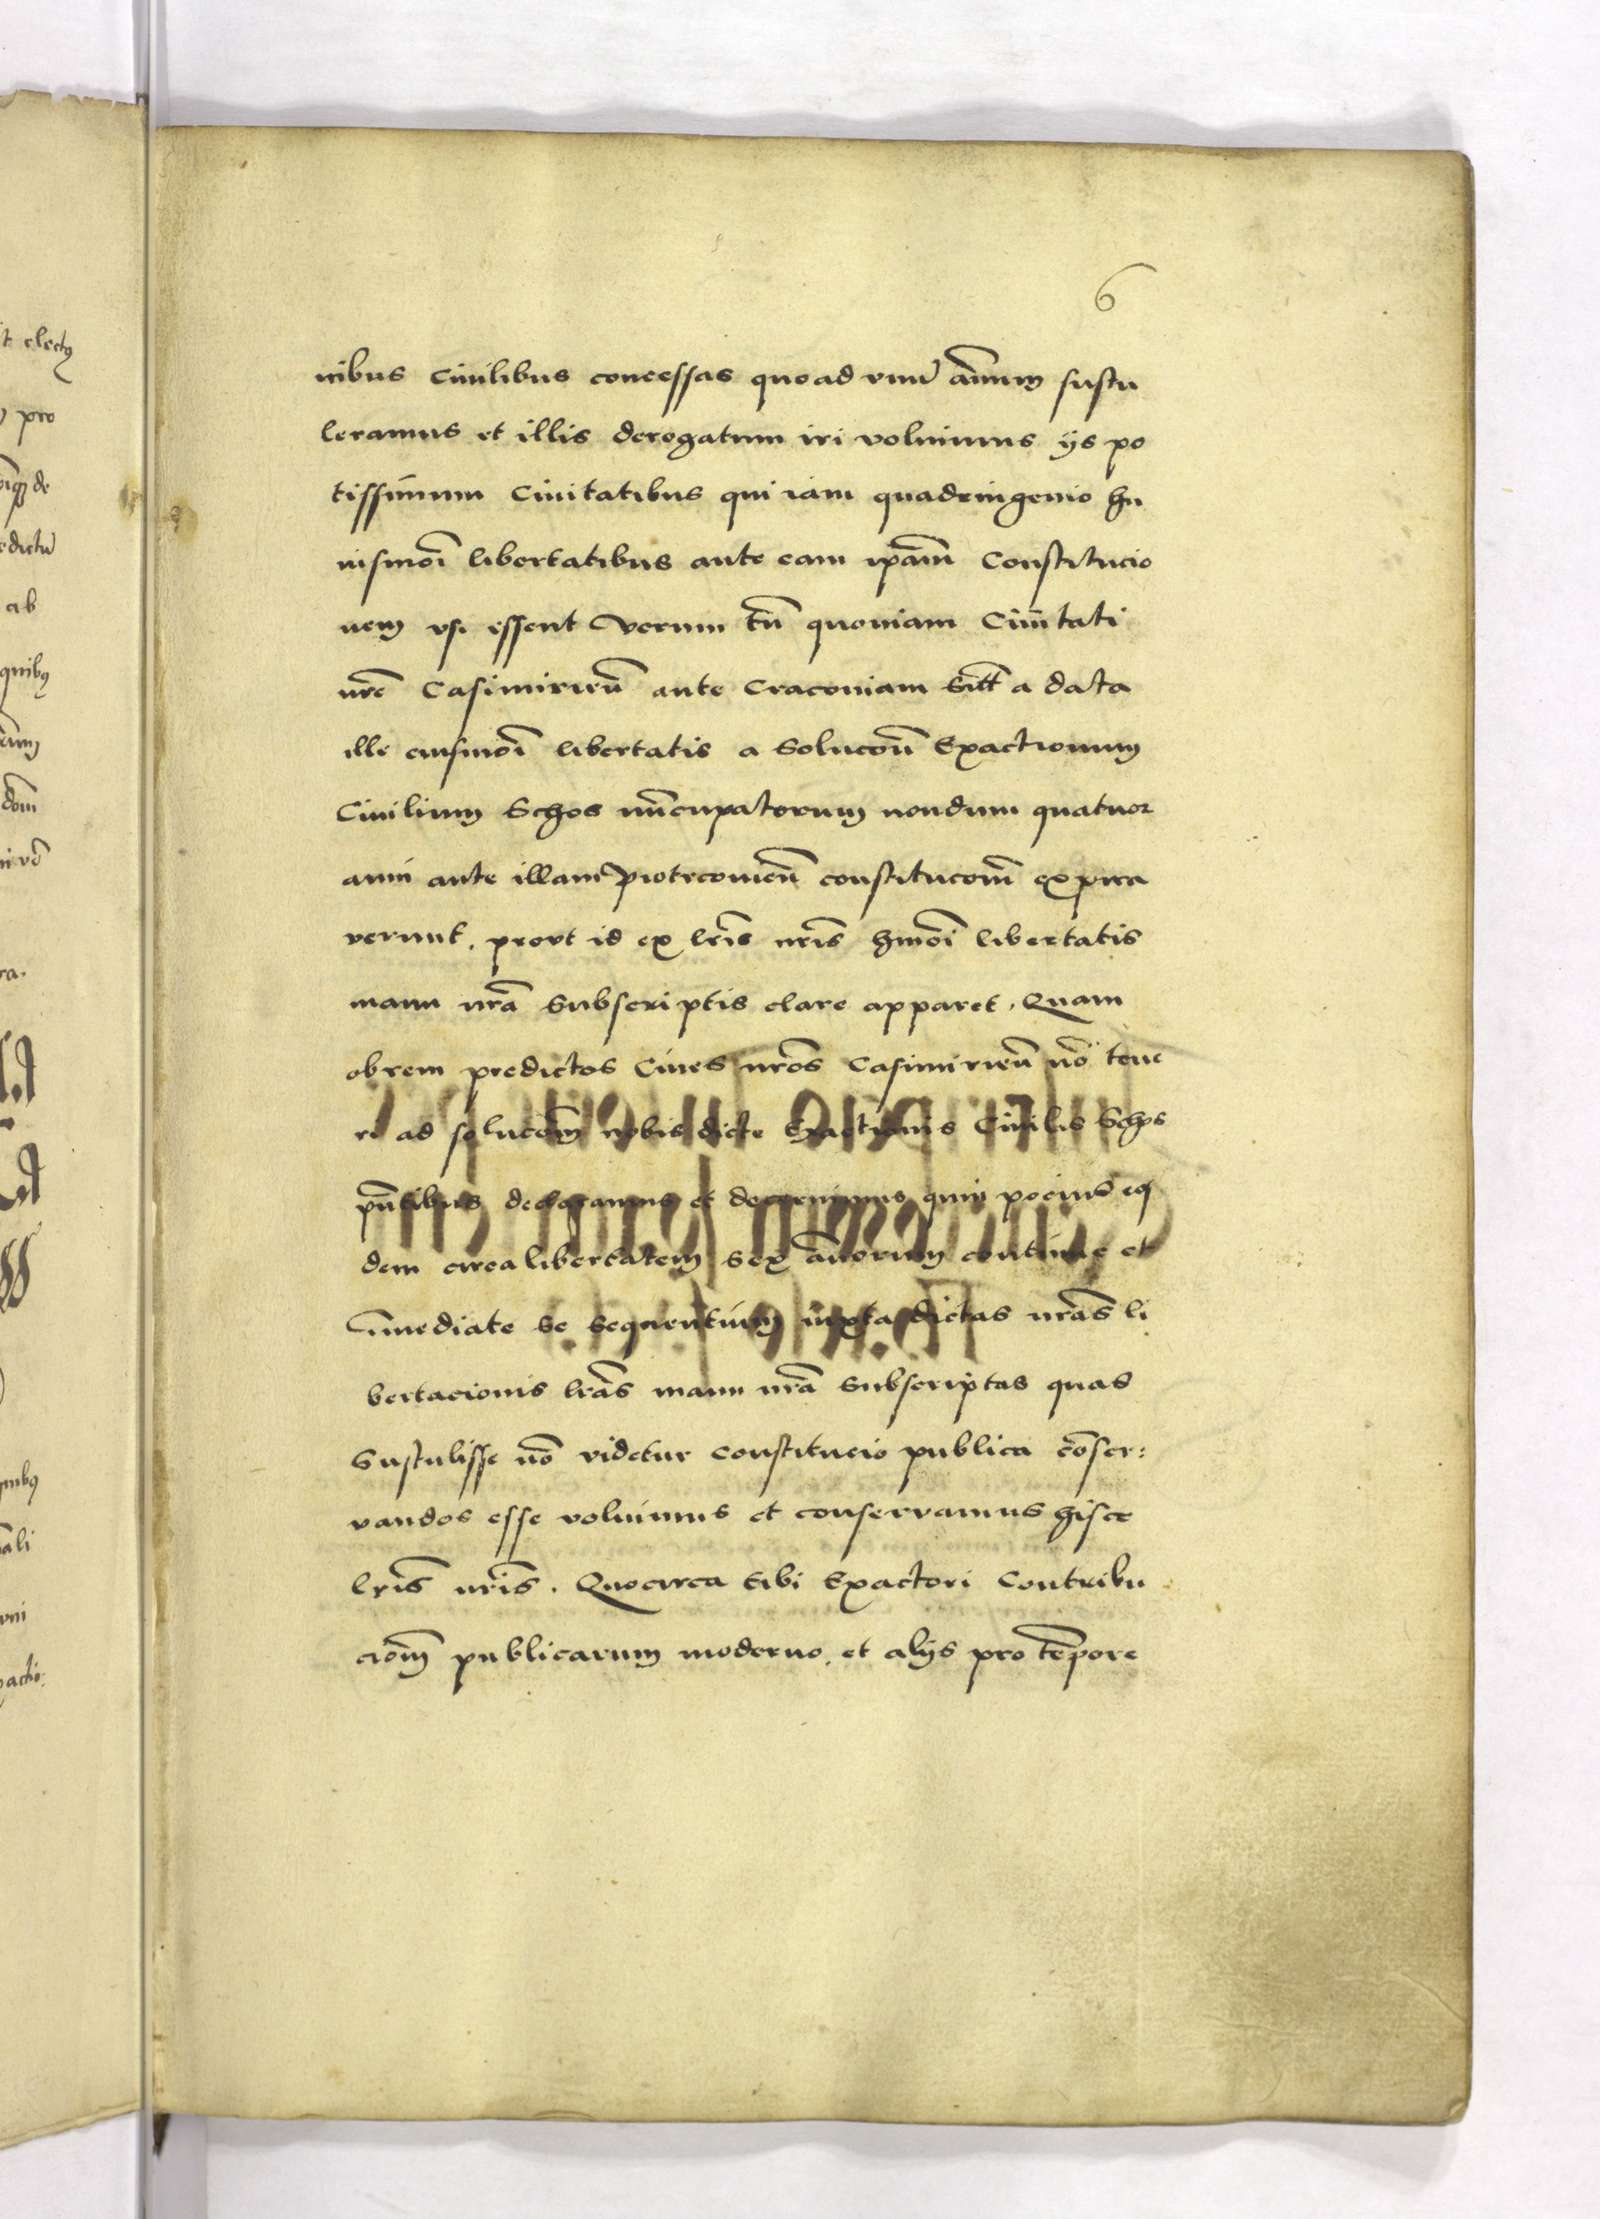 6
nibus Ciuilibus concessas quoad vnũ añum sustu
leramus et illis derogatum iri voluimus ijs po
tissimum Ciuitatibus qui iam quadringenio hu
iusmoĩ libertatibus ante eam ipãm Constitucio
nem vsi essent Verum tñ quoniam Ciuitati
nrẽ Casimirieñ ante Cracouiam a data
ille eiusmoĩ libertatis a Solucoñ Exactionum
Ciuilium Schos nũcupatorum nondum quatuor
anni ante illam Piotrcouieñ constitucoẽm expira
verunt, provt id ex lrĩs nrĩs hmoĩ libertatis
manu nrã Subscriptis clare apparet. Quam
obrem predictos Ciues nrõs Casimirieñ nõ tene
ri ad solucoẽm nobis dicte Exactionis Ciuilis Schos
pñtibus declaramus et decernimus quin pocius eos
dem circa libertatem Sex añorum continue et
Immediate Se Sequentium iuxta dictas nrãs li
bertacionis lrãs manu nrã Subscriptas quas
Sustulisse nõ videtur Constitucio publica cõser:
vandos esse voluimus et conservamus hisce
lrĩs nrĩs. Quocirca tibi Exactori Contribu
cioñ publicarum moderno, et alijs pro tẽpore
electq
pro
de
edictũ
ab
quibq